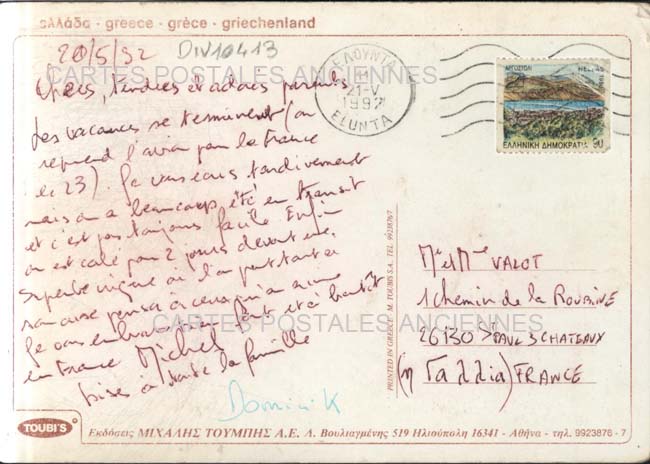 ελλάδα · greece · grèce · griechenland
20/5/92 DIV10413
CARTES POSTALES ANCIENNES
tendres et adorés parents
Les vacances se terminent (on
reprend l'avion pour la France
le 23). Je vous écris tardivement
mais on a beaucoup été en transit
et c'est pas toujours facile Enfin
on est calé pour 2 jours devant une
superbe crique où l'on peut tout à
son aise penser à ceux qu'on aime
Je vous embrasse fort et à bientôt
en France Michel
bises à toute la famille
Dominik
ΕΛΟΥΝΤΑ
21-V
1992
ELUNTA
ΑΙΤΩΛΙΚΟ HELLAS
ΕΛΛΗΝΙΚΗ ΔΗΜΟΚΡΑΤΙΑ 90
PRINTED IN GREECE M. TOUBIS S.A. TEL. 9923876/7
Mr et Mme VALOT
1 chemin de la Roubine
CARTES POSTALES ANCIENNES
26130 St PAUL 3 CHATEAUX
(η Γαλλία) FRANCE
TOUBI'S
Εκδόσεις ΜΙΧΑΛΗΣ ΤΟΥΜΠΗΣ Α.Ε. Λ. Βουλιαγμένης 519 Ηλιούπολη 16341 - Αθήνα - τηλ. 9923876 - 7